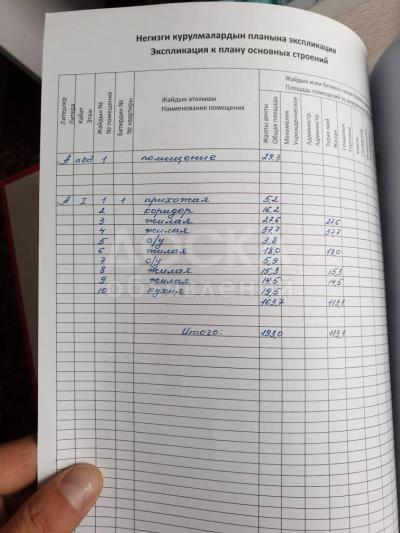 Негизги курулмалардын планына экспликация
Экспликация к плану основных строений
Литерлер
Литера
Кабат
Этаж
Жайдын №
№ помещения
Батирдин №
№ квартиры
Жайдын аталышы
Наименование помещения
Жалпы аянты
Общая площадь
Мекемелик
Учрежденческое
Администр.
Администр.
Турак жай
Жилая
А под 1 помещение 29,3
А I 1 1 прихожая 5,2
2 коридор 16,2
3 жилая 27,6 27,6
4 жилая 37,7 37,7
5 с/у 3,8
6 жилая 18,0 18,0
7 с/у 5,9
8 жилая 15,3 15,3
9 жилая 14,5 14,5
10 кухня 19,5
163,7 113,1
Итого: 193,0 113,1